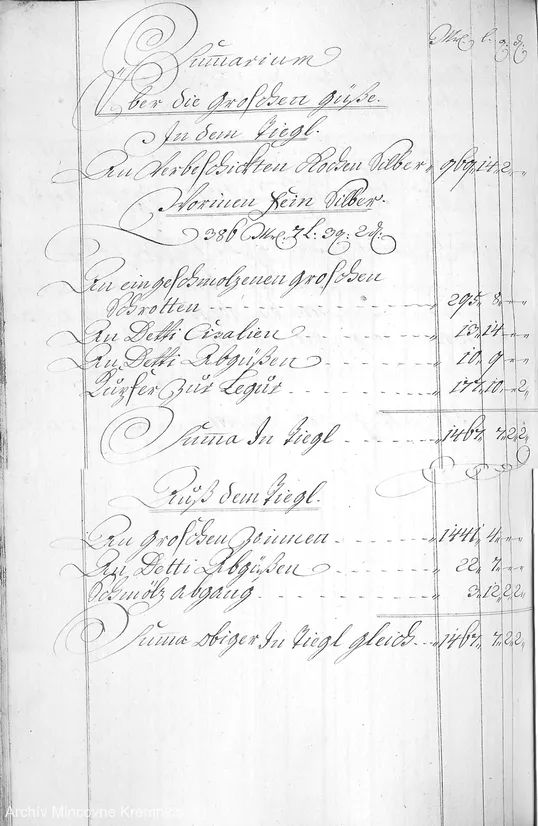 Mk. l. q. d.
Summarium
Über die Groschen Güße.
In dem Tiegl.
An Verbeschickten Rochen Silber 969 14 2
Worinen Fein Silber.
386 Mk. 7 l. 3 q. 2 d.
An eingeschmolzenen Groschen
Schrotten 295 8
An Detti Cisalien 13 14
An Detti Abgüßen 10 9
Kupfer Zur Legur 177 10 2
Summa In Tiegl 1467 7 2 2
Auß dem Tiegl.
An Groschen Zainnen 1441 4
An Detti Abgüßen 22 7
Schmölz abgang 3 12 2 2
Summa obiger In Tiegl gleich 1467 7 2 2
Archív Mincovne Kremnica